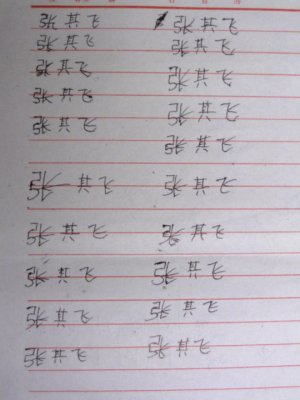 张其飞 张其飞
张其飞 张其飞
张其飞 张其飞
张其飞 张其飞
张其飞 张其飞
张其飞 张其飞
张其飞 张其飞
张其飞 张其飞
张其飞 张其飞
张其飞 张其飞